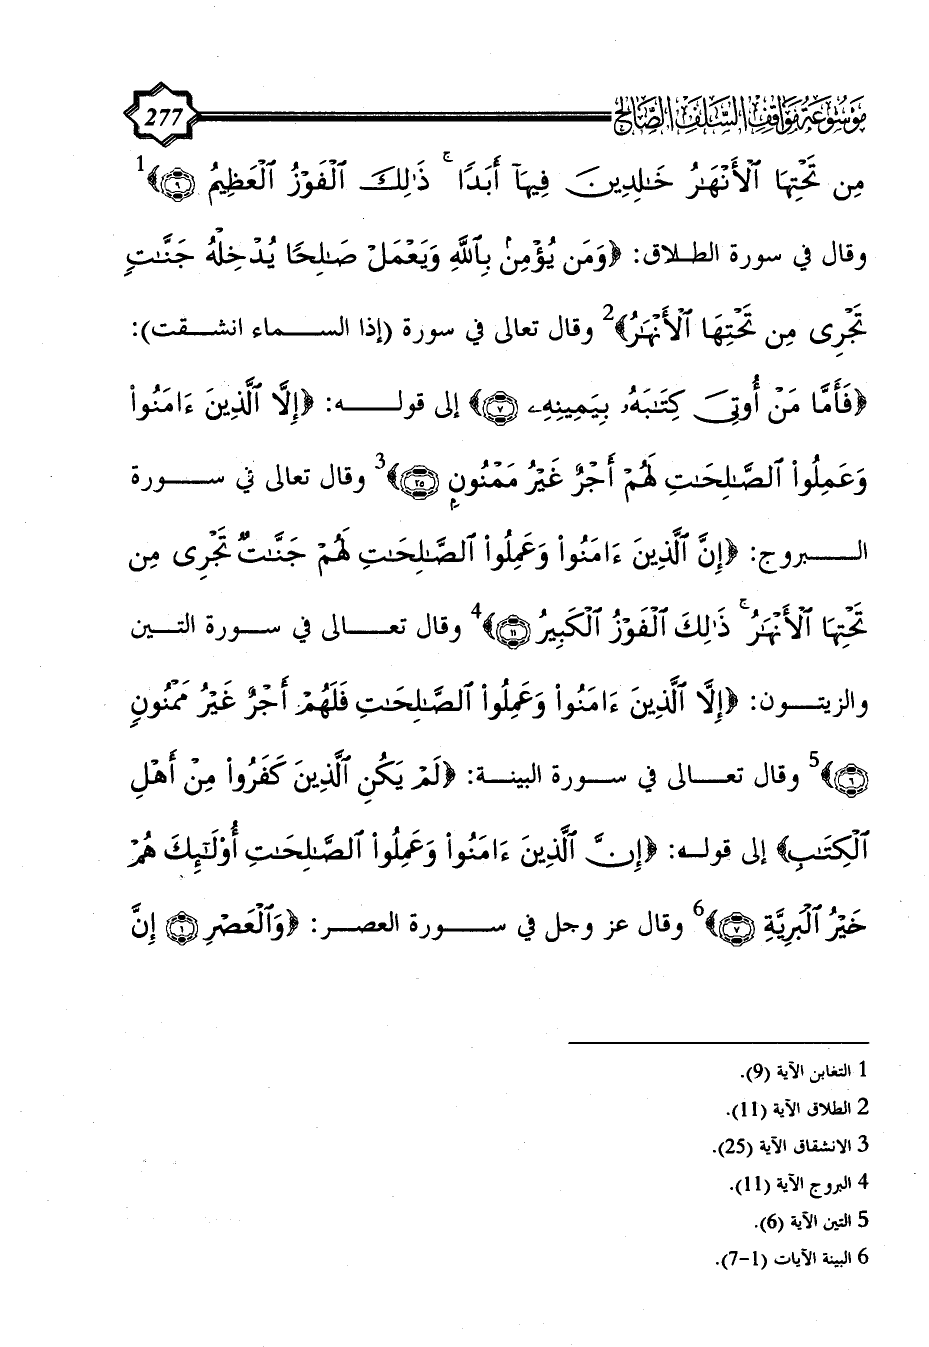 موسوعة مواقف السلف الصالح
277
مِن تَحْتِهَا ٱلْأَنْهَـٰرُ خَـٰلِدِينَ فِيهَآ أَبَدًا ۚ ذَٰلِكَ ٱلْفَوْزُ ٱلْعَظِيمُ ﴿٩﴾1
وقال في سورة الطلاق: ﴿وَمَن يُؤْمِنۢ بِٱللَّهِ وَيَعْمَلْ صَـٰلِحًا يُدْخِلْهُ جَنَّـٰتٍ
تَجْرِى مِن تَحْتِهَا ٱلْأَنْهَـٰرُ﴾2 وقال تعالى في سورة (إذا السماء انشقت):
﴿فَأَمَّا مَنْ أُوتِىَ كِتَـٰبَهُۥ بِيَمِينِهِۦ ﴿٧﴾ إلى قوله: ﴿إِلَّا ٱلَّذِينَ ءَامَنُوا۟
وَعَمِلُوا۟ ٱلصَّـٰلِحَـٰتِ لَهُمْ أَجْرٌ غَيْرُ مَمْنُونٍۭ ﴿٢٥﴾3 وقال تعالى في سورة
البروج: ﴿إِنَّ ٱلَّذِينَ ءَامَنُوا۟ وَعَمِلُوا۟ ٱلصَّـٰلِحَـٰتِ لَهُمْ جَنَّـٰتٌ تَجْرِى مِن
تَحْتِهَا ٱلْأَنْهَـٰرُ ۚ ذَٰلِكَ ٱلْفَوْزُ ٱلْكَبِيرُ ﴿١١﴾4 وقال تعالى في سورة التين
والزيتون: ﴿إِلَّا ٱلَّذِينَ ءَامَنُوا۟ وَعَمِلُوا۟ ٱلصَّـٰلِحَـٰتِ فَلَهُمْ أَجْرٌ غَيْرُ مَمْنُونٍ
﴿٦﴾5 وقال تعالى في سورة البينة: ﴿لَمْ يَكُنِ ٱلَّذِينَ كَفَرُوا۟ مِنْ أَهْلِ
ٱلْكِتَـٰبِ﴾ إلى قوله: ﴿إِنَّ ٱلَّذِينَ ءَامَنُوا۟ وَعَمِلُوا۟ ٱلصَّـٰلِحَـٰتِ أُو۟لَـٰٓئِكَ هُمْ
خَيْرُ ٱلْبَرِيَّةِ ﴿٧﴾6 وقال عز وجل في سورة العصر: ﴿وَٱلْعَصْرِ ﴿١﴾ إِنَّ
1 التغابن الآية (9).
2 الطلاق الآية (11).
3 الانشقاق الآية (25).
4 البروج الآية (11).
5 التين الآية (6).
6 البينة الآيات (1-7).